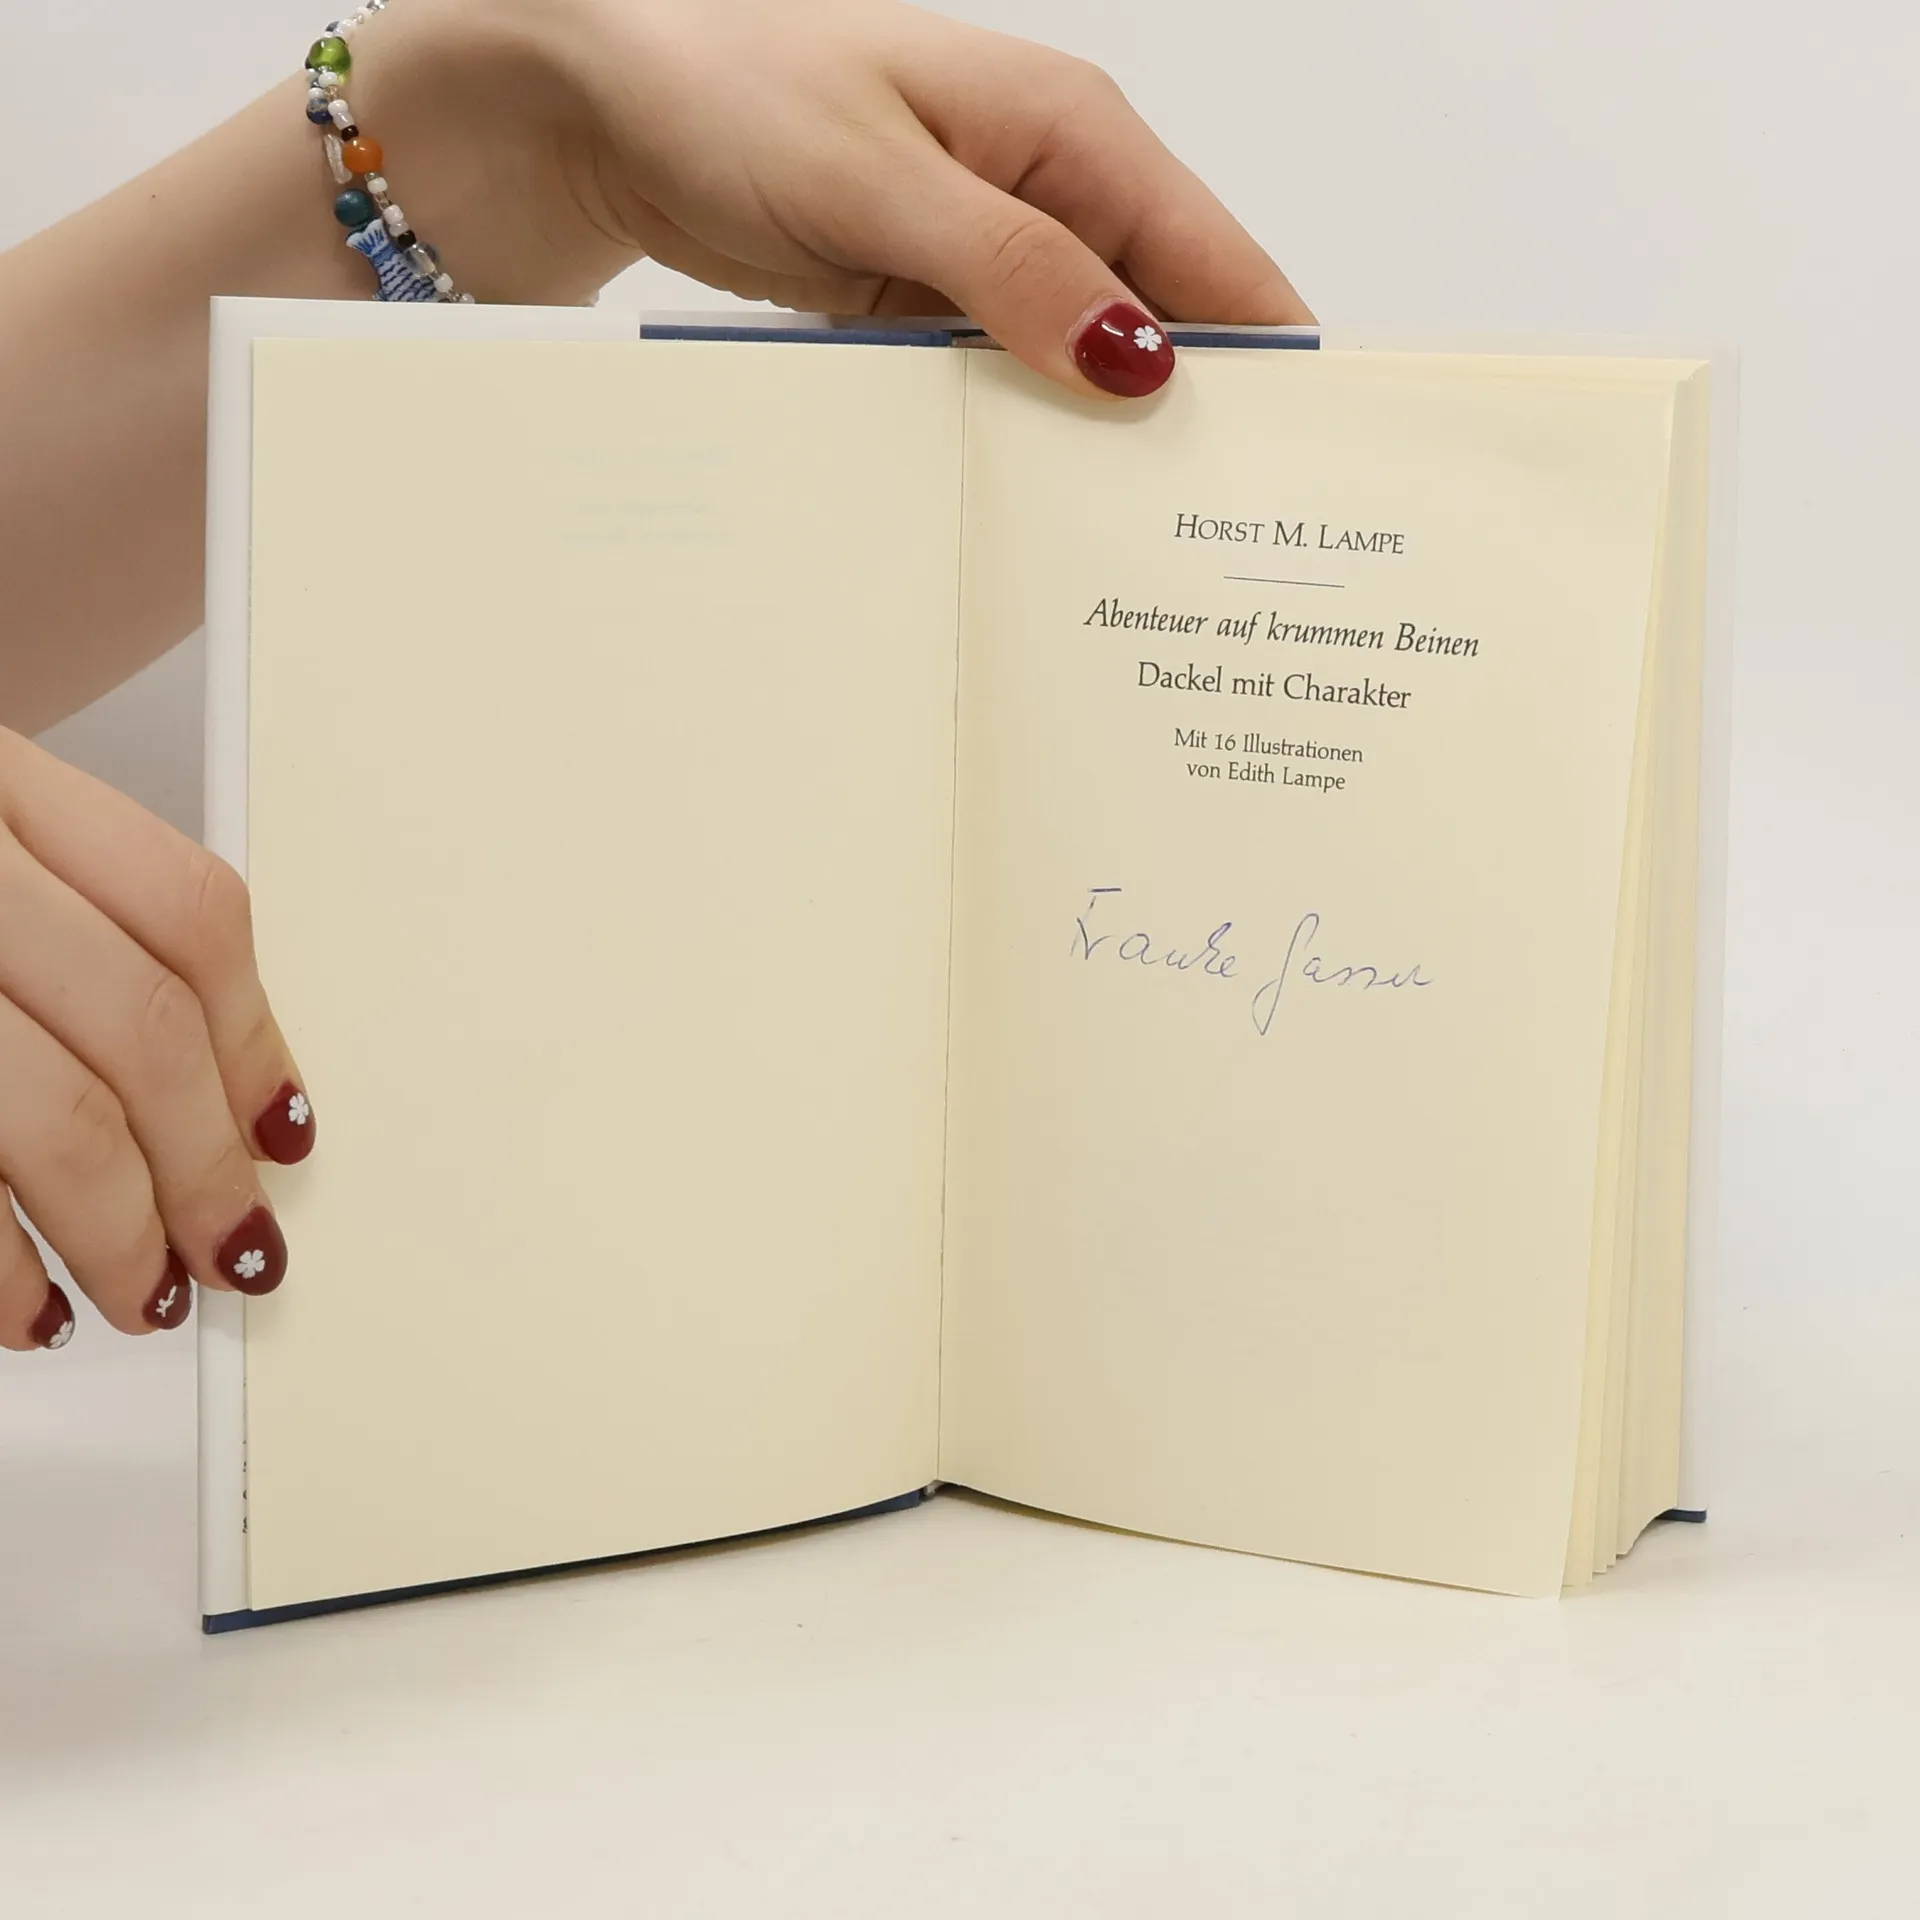 HORST M. LAMPE
Abenteuer auf krummen Beinen
Dackel mit Charakter
Mit 16 Illustrationen
von Edith Lampe
Frauke Gasser